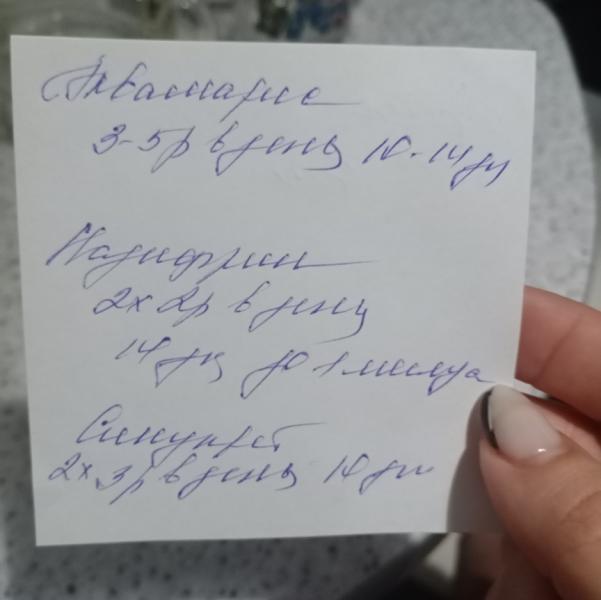 Аквамарис
3-5р в день 10-14 дн
Назифрин
2х 2р в день
14 дн до 1 месяца
Синупрет
2х 3р в день 14 дн